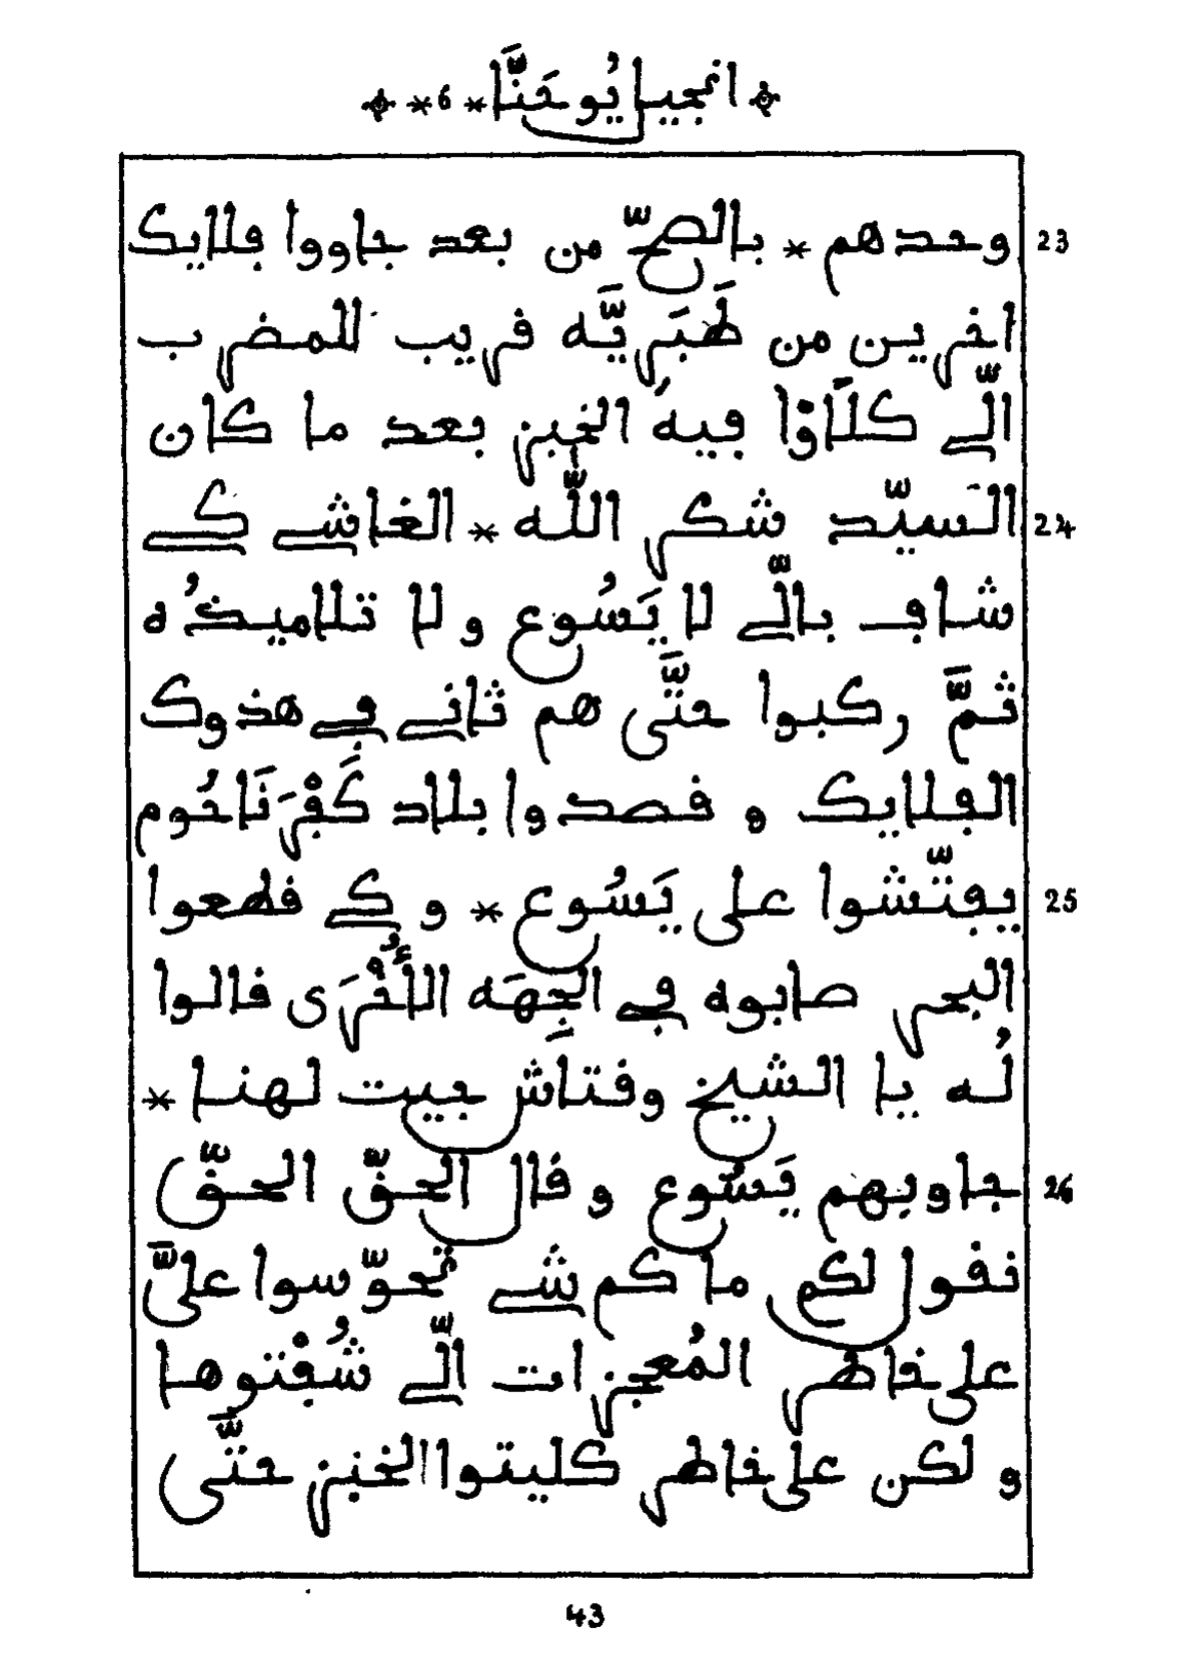 انجيل يُوحَنَّا * 6 *
23 وحدهم * بالصّح من بعد جاووا فلايك
اخرين من طَبَرِيَّه قريب للمضرب
الّي كلَاوْا فيهُ الخبز بعد ما كان
24 السيّد شكر اللّه * الغاشي كي
شاف بالّي لا يَسُوع و لا تلاميذُه
ثمَّ ركبوا حتَّى هم ثاني في هذوك
الفلايك و قصدوا بلاد كَفْرَنَاحُوم
25 يفتّشوا على يَسُوع * و كي قطعوا
البحر صابوه في الجِهَه الأُخْرَى قالوا
لُه يا الشيخ وقتاش جيت لهنا *
26 جاوبهم يَسُوع و قال الحقّ الحقّ
نقول لكم ما كم شي تحوّسوا عليَّ
على خاطر المُعجزات الّي شُفْتوها
و لكن على خاطر كليتوا الخبز حتَّى
43